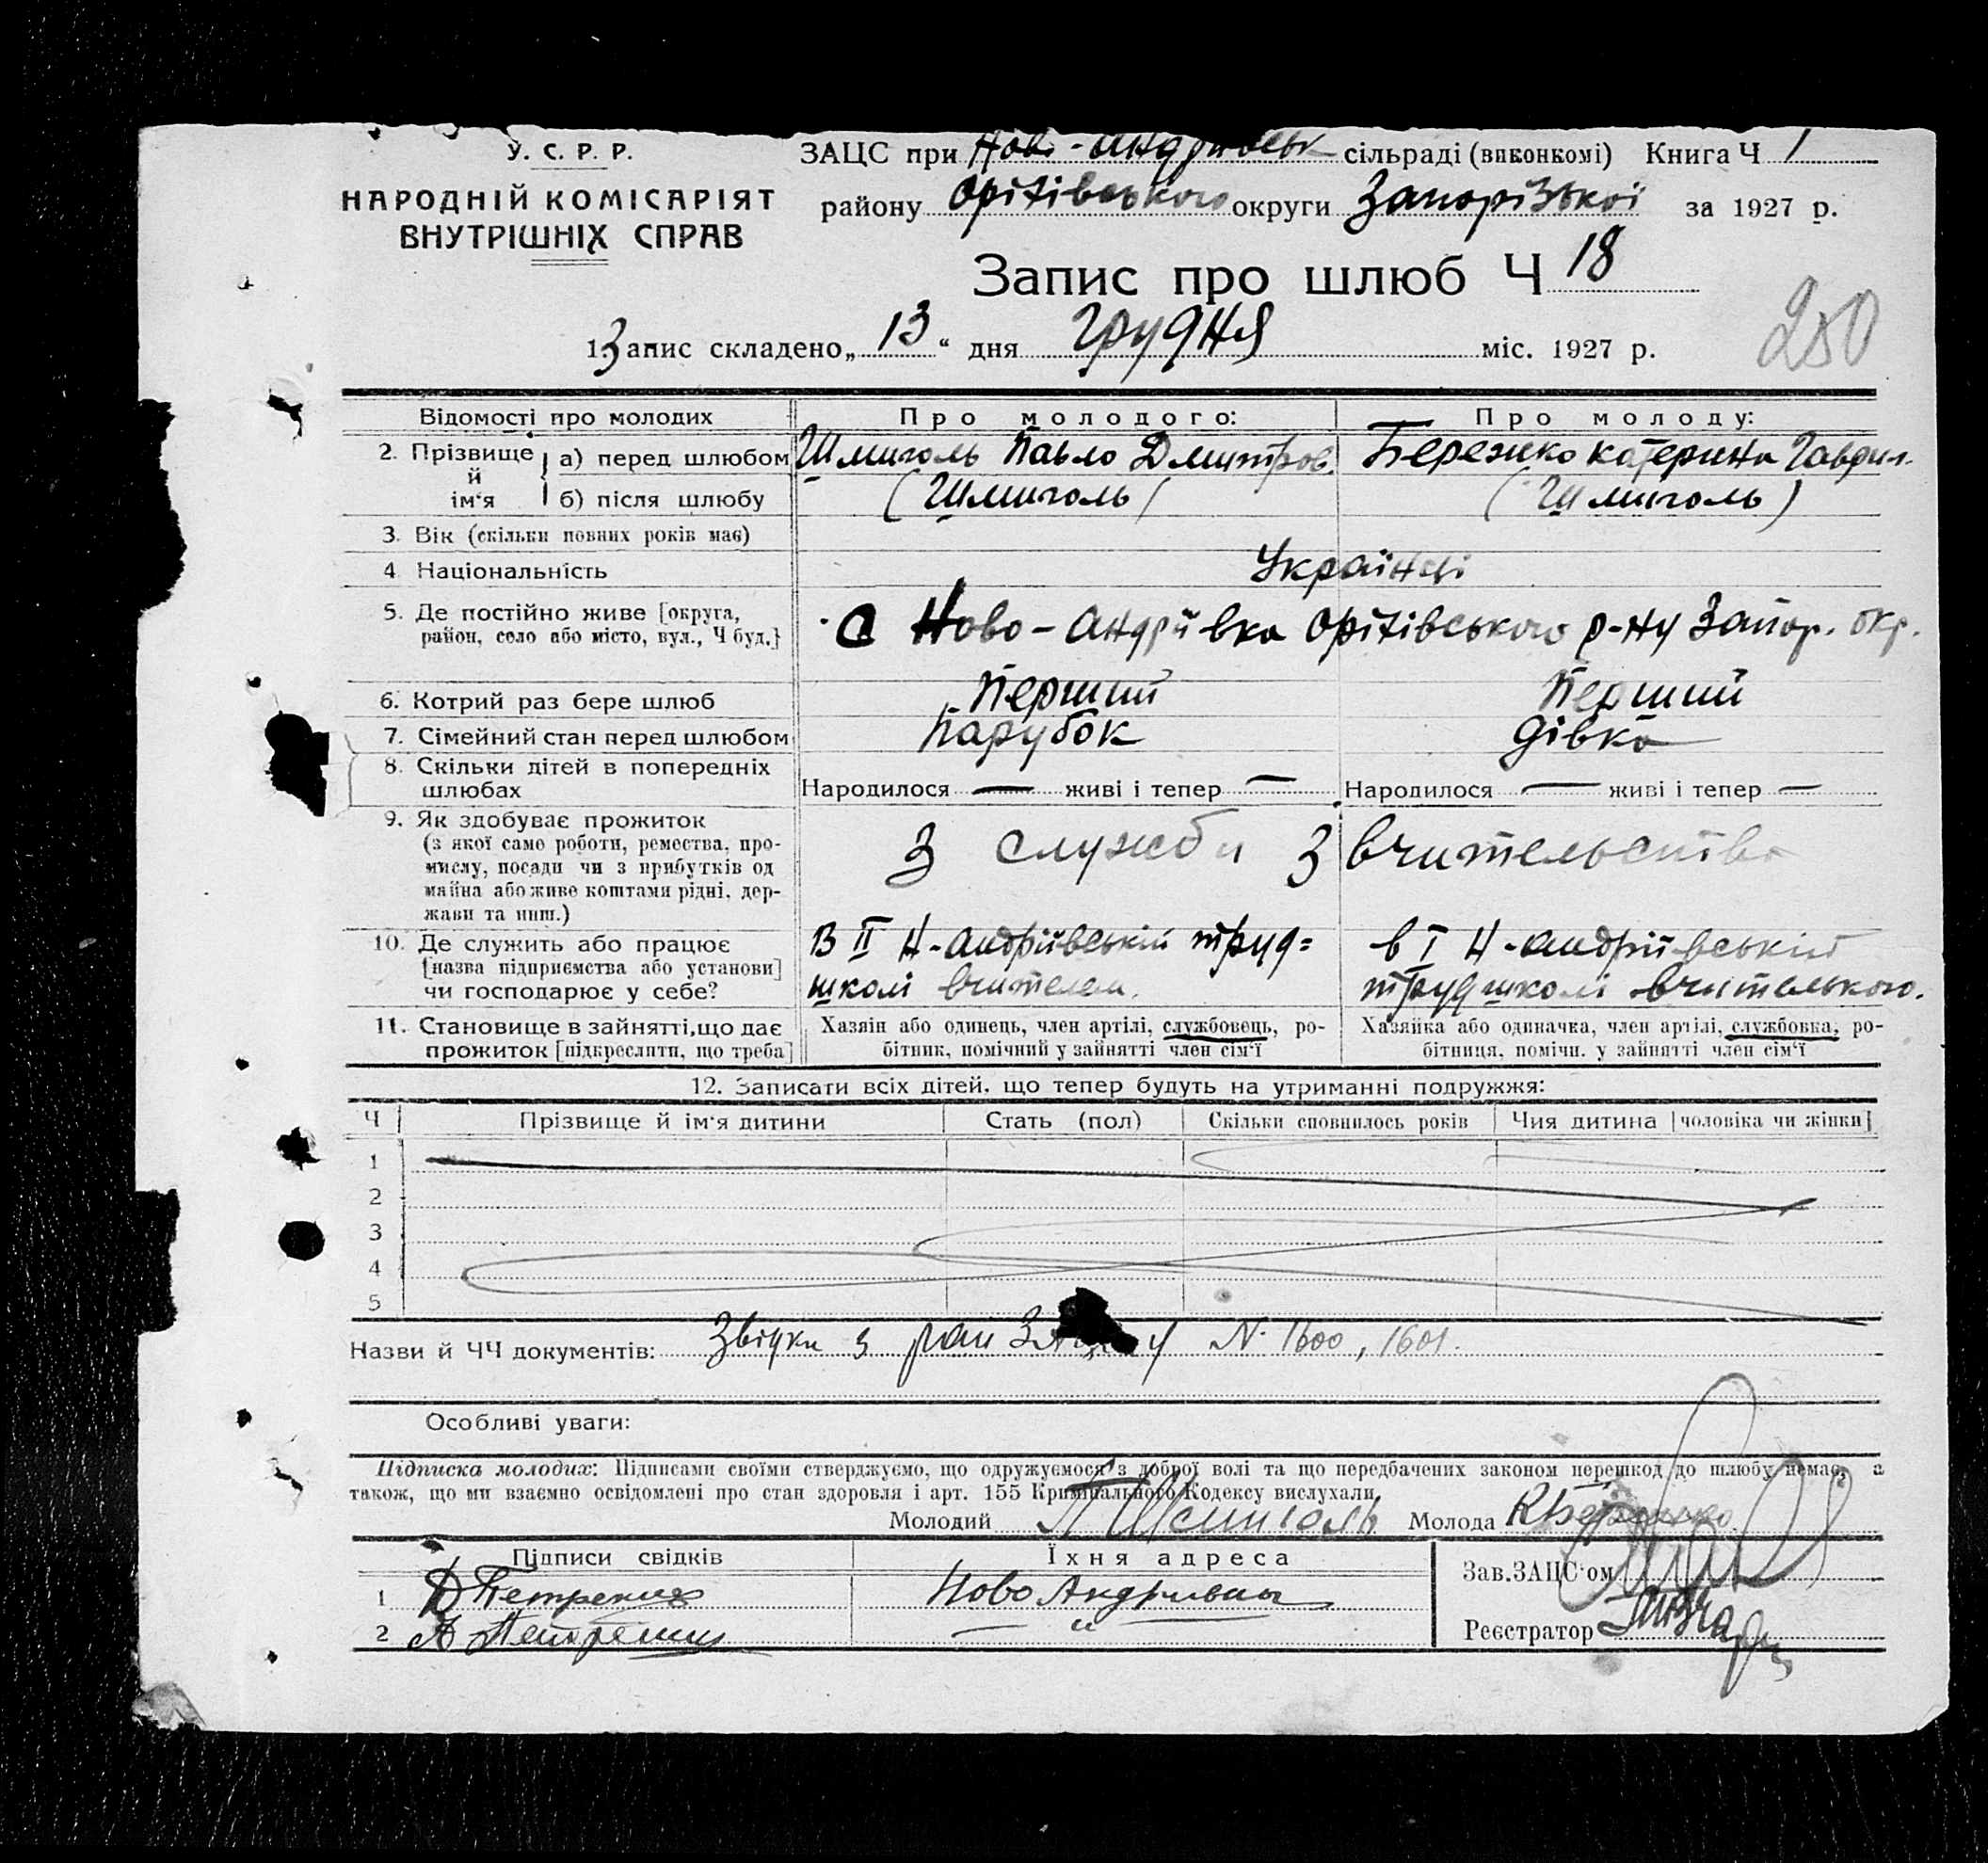 У. С. Р. Р.
НАРОДНІЙ КОМІСАРІЯТ
ВНУТРІШНІХ СПРАВ
ЗАЦС при Ново-Андріївськ сільраді (виконкомі) Книга Ч 1
району Оріхівського округи Запорізької за 1927 р.
Запис про шлюб Ч 18
250
1. Запис складено „13“ дня Грудня міс. 1927 р.
Відомості про молодих Про молодого: Про молоду:
2. Прізвище й ім‘я а) перед шлюбом Шмиголь Павло Дмитров. Бережко Катерина Гаврил.
б) після шлюбу (Шмиголь) (Шмиголь)
3. Вік (скільки повних років має)
4 Національність Українці
5. Де постійно живе [округа, район, село або місто, вул., Ч буд.} с Ново-Андріївка Оріхівського р-ну Запор. окр.
6. Котрий раз бере шлюб Перший Перший
7. Сімейний стан перед шлюбом Парубок Дівка
8. Скільки дітей в попередніх шлюбах Народилося — живі і тепер — Народилося — живі і тепер —
9. Як здобуває прожиток З служби З вчительства
(з якої само роботи, ремества, про-
мислу, посади чи з прибутків од
майна або живе коштами рідні, дер-
жави та инш.)
10. Де служить або працює В ІІ Н-Андріївській труд= в І Н-Андріївській
[назва підприємства або установи] чи господарює у себе? школі вчителем. трудшколі вчителькою.
11. Становище в зайнятті, що дає Хазяїн або одинець, член артілі, службовець, ро- Хазяйка або одиначка, член артілі, службовка, ро-
прожиток [підкреслити, що треба] бітник, помічний у зайнятті член сім‘ї бітниця, помічн. у зайнятті член сім‘ї
12. Записати всіх дітей, що тепер будуть на утриманні подружжя:
Ч Прізвище й ім‘я дитини Стать (пол) Скільки сповнилось років Чия дитина [чоловіка чи жінки]
1
2
3
4
5
Назви й ЧЧ документів: Звідки з рай N. 1600, 1601.
Особливі уваги:
Підписка молодих: Підписами своїми стверджуємо, що одружуємося з доброї волі та що передбачених законом перешкод до шлюбу немає, а
також, що ми взаємно освідомлені про стан здоровля і арт. 155 Кримінального Кодексу вислухали.
Молодий П Шмиголь Молода К Бережко
Підписи свідків Їхня адреса Зав.ЗАЦС‘ом
1 Д Петренко Ново Андрівка
2 А Петренко — „ — Реєстратор